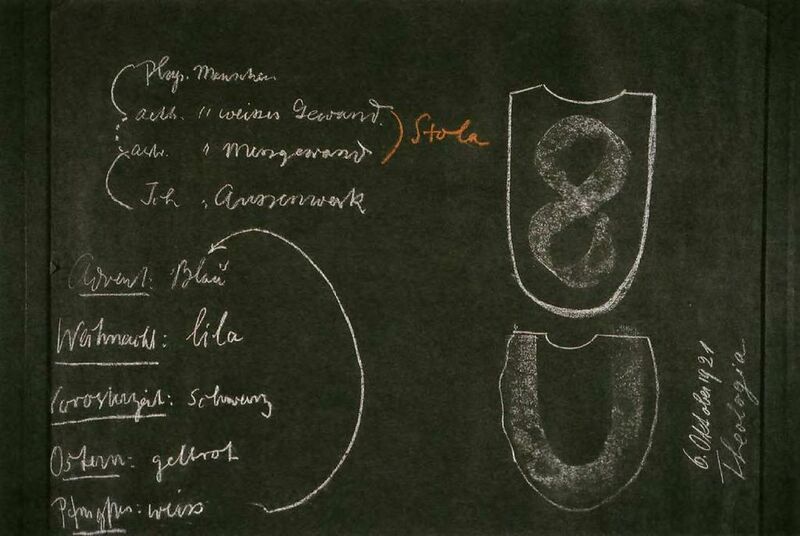 Phys. Menschen
aeth. " weisses Gewand
astr. " Messgewand
Stola
Ich, Aussenwerk
Advent: Blau
Weihnacht: lila
Vorosterzeit: Schwarz
Ostern: gelbrot
Pfingsten: weiss
6. Oktober 1921
Theologia